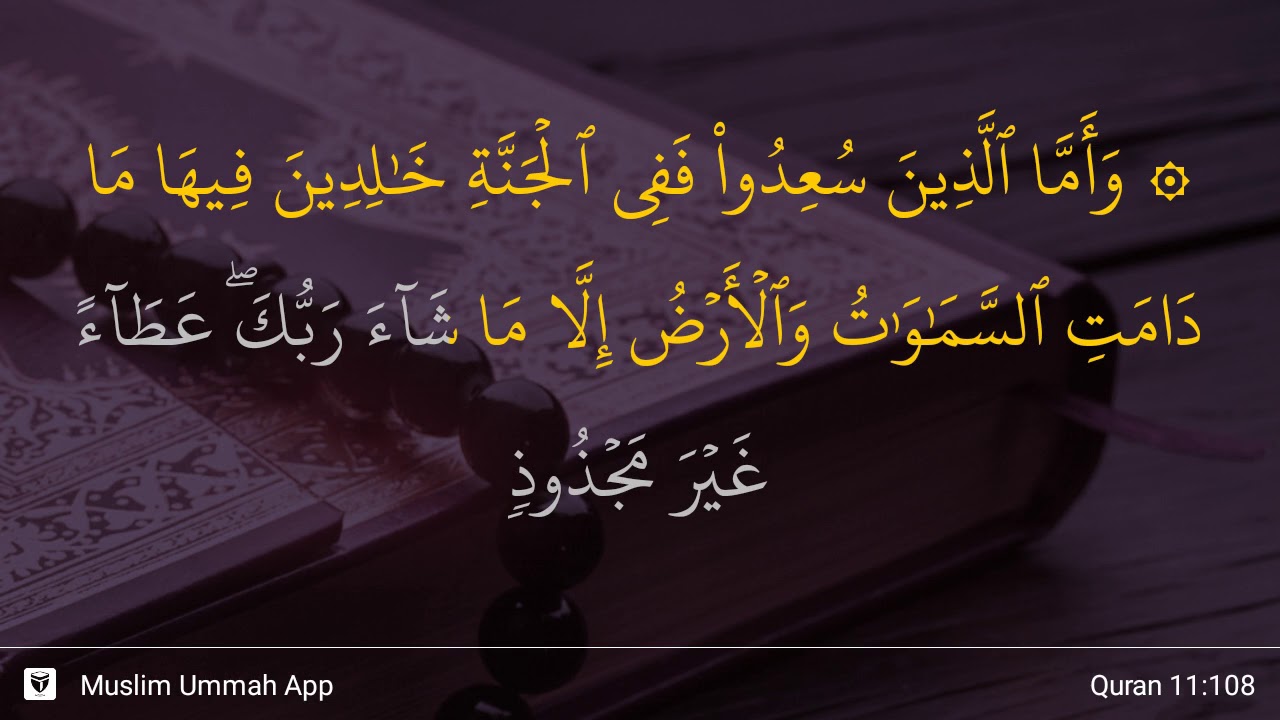 ۞ وَأَمَّا ٱلَّذِينَ سُعِدُوا۟ فَفِى ٱلْجَنَّةِ خَـٰلِدِينَ فِيهَا مَا
دَامَتِ ٱلسَّمَـٰوَٰتُ وَٱلْأَرْضُ إِلَّا مَا شَآءَ رَبُّكَ ۖ عَطَآءً
غَيْرَ مَجْذُوذٍ
Muslim Ummah App
Quran 11:108